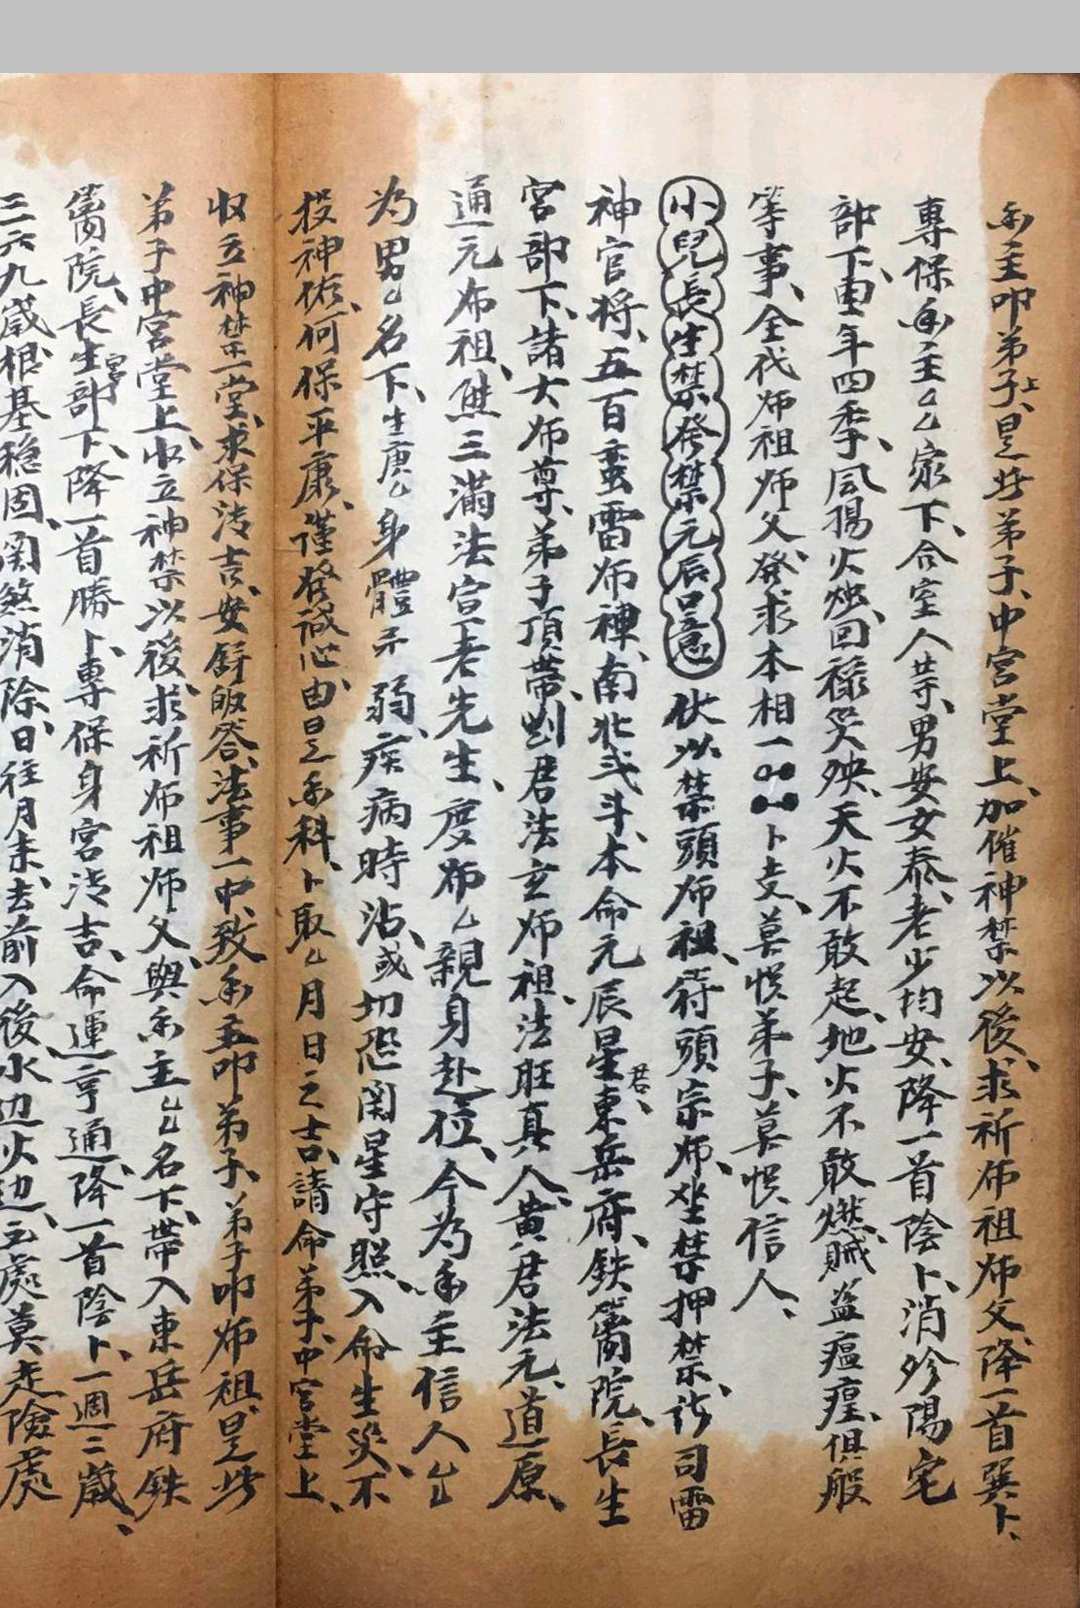 主叩弟子上、是些弟子、中宮堂上、加催神禁以後、求祈师祖师父、降一首巽卜、
專保主厶家下、合室人䓁、男安女泰、老少均安、降一首陰卜、消殄陽宅
部下、由年四季、風揚火燭、回祿災殃、天火不敢起、地火不敢燃、賊盗瘟瘟、俱般
等事、全代师祖师父、發求本相一卜支、莫悞弟子、莫悞信人、
小兒長生禁發禁元辰意 伏以禁頭师祖、符頭宗师、坐禁押禁、許司雷
神官将、五百蛮雷师禅、南北弍斗、本命元辰星君、東岳府、鉄萬院、長生
宮部下、諸大师尊、弟子頂帶、刘君法玄师祖、法旺真人、黄君法元、道原、
通元布祖、熊三滿法宣老先生、度师厶親身赴位、今为主信人厶
为男厶名下、生庚厶身體不弱、疾病時沾、或切恐関星守照、入命生災、不
投神佑、何保平康、謹發誠心、由是科、卜取厶月日之吉、請命弟子、中宮堂上、
收立神禁一堂、求保法吉、安舒皈答、法事一中、致主叩弟子、弟子叩师祖、是些
弟子中宮堂上、收立神禁以後、求祈师祖师父、與主厶名下、帶入東岳府鉄
萬院、長生宮部下、降一首勝卜、專保身宮法吉、命運亨通、降一首陰卜、一週二歲、
三六九歲、根基稳固、関煞消除、日往月来、去前入後、水边火边、之處莫走險處